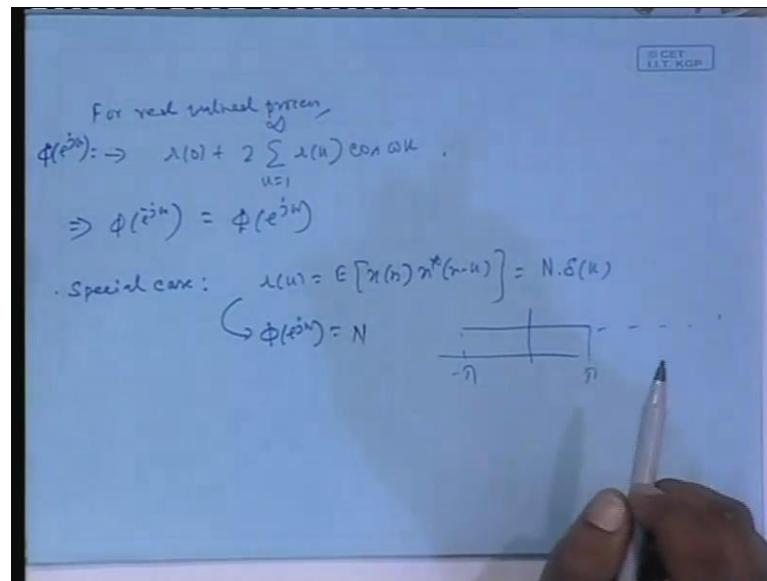 © CET
I.I.T. KGP
For real valued process,
φ(e^{jω}) :→ r(0) + 2 ∑_{k=1}^{∞} r(k) cos ωk .
⇒ φ(e^{-jω}) = φ(e^{jω})
. Special case : r(k) = E[x(n) x*(n-k)] = N.δ(k)
φ(e^{jω}) = N
-π π